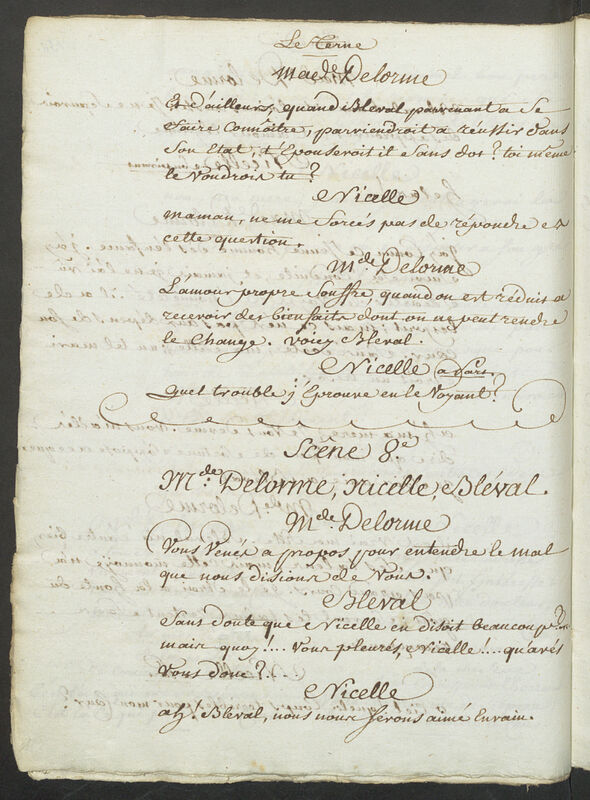 Le Terne
Made Delorme
Et d'ailleurs, quand Bleval parvenant a se
faire Connoitre, parviendroit a réussir dans
son Etat, t'Epouseroit il sans dot? toi même
le voudrois tu?
Nicelle
maman, ne me forcés pas de répondre a
cette question.
Mde Delorme
L'amour propre souffre, quand on est réduit a
recevoir des bienfaits dont on ne peut rendre
le Change. voicy Bleval.
Nicelle a part
quel trouble j'Eprouve en le Voyant?
Scêne 8e
Mde Delorme, Nicelle, Bléval.
Mde Delorme
Vous Venés a propos pour entendre le mal
que nous disions de Vous.
Bleval
Sans doute que Nicelle en disoit beaucoup
mais quoy!... Vous pleurés, Nicelle!... qu'avés
Vous donc?
Nicelle
ah. Bleval, nous nous serons aimé Envain.